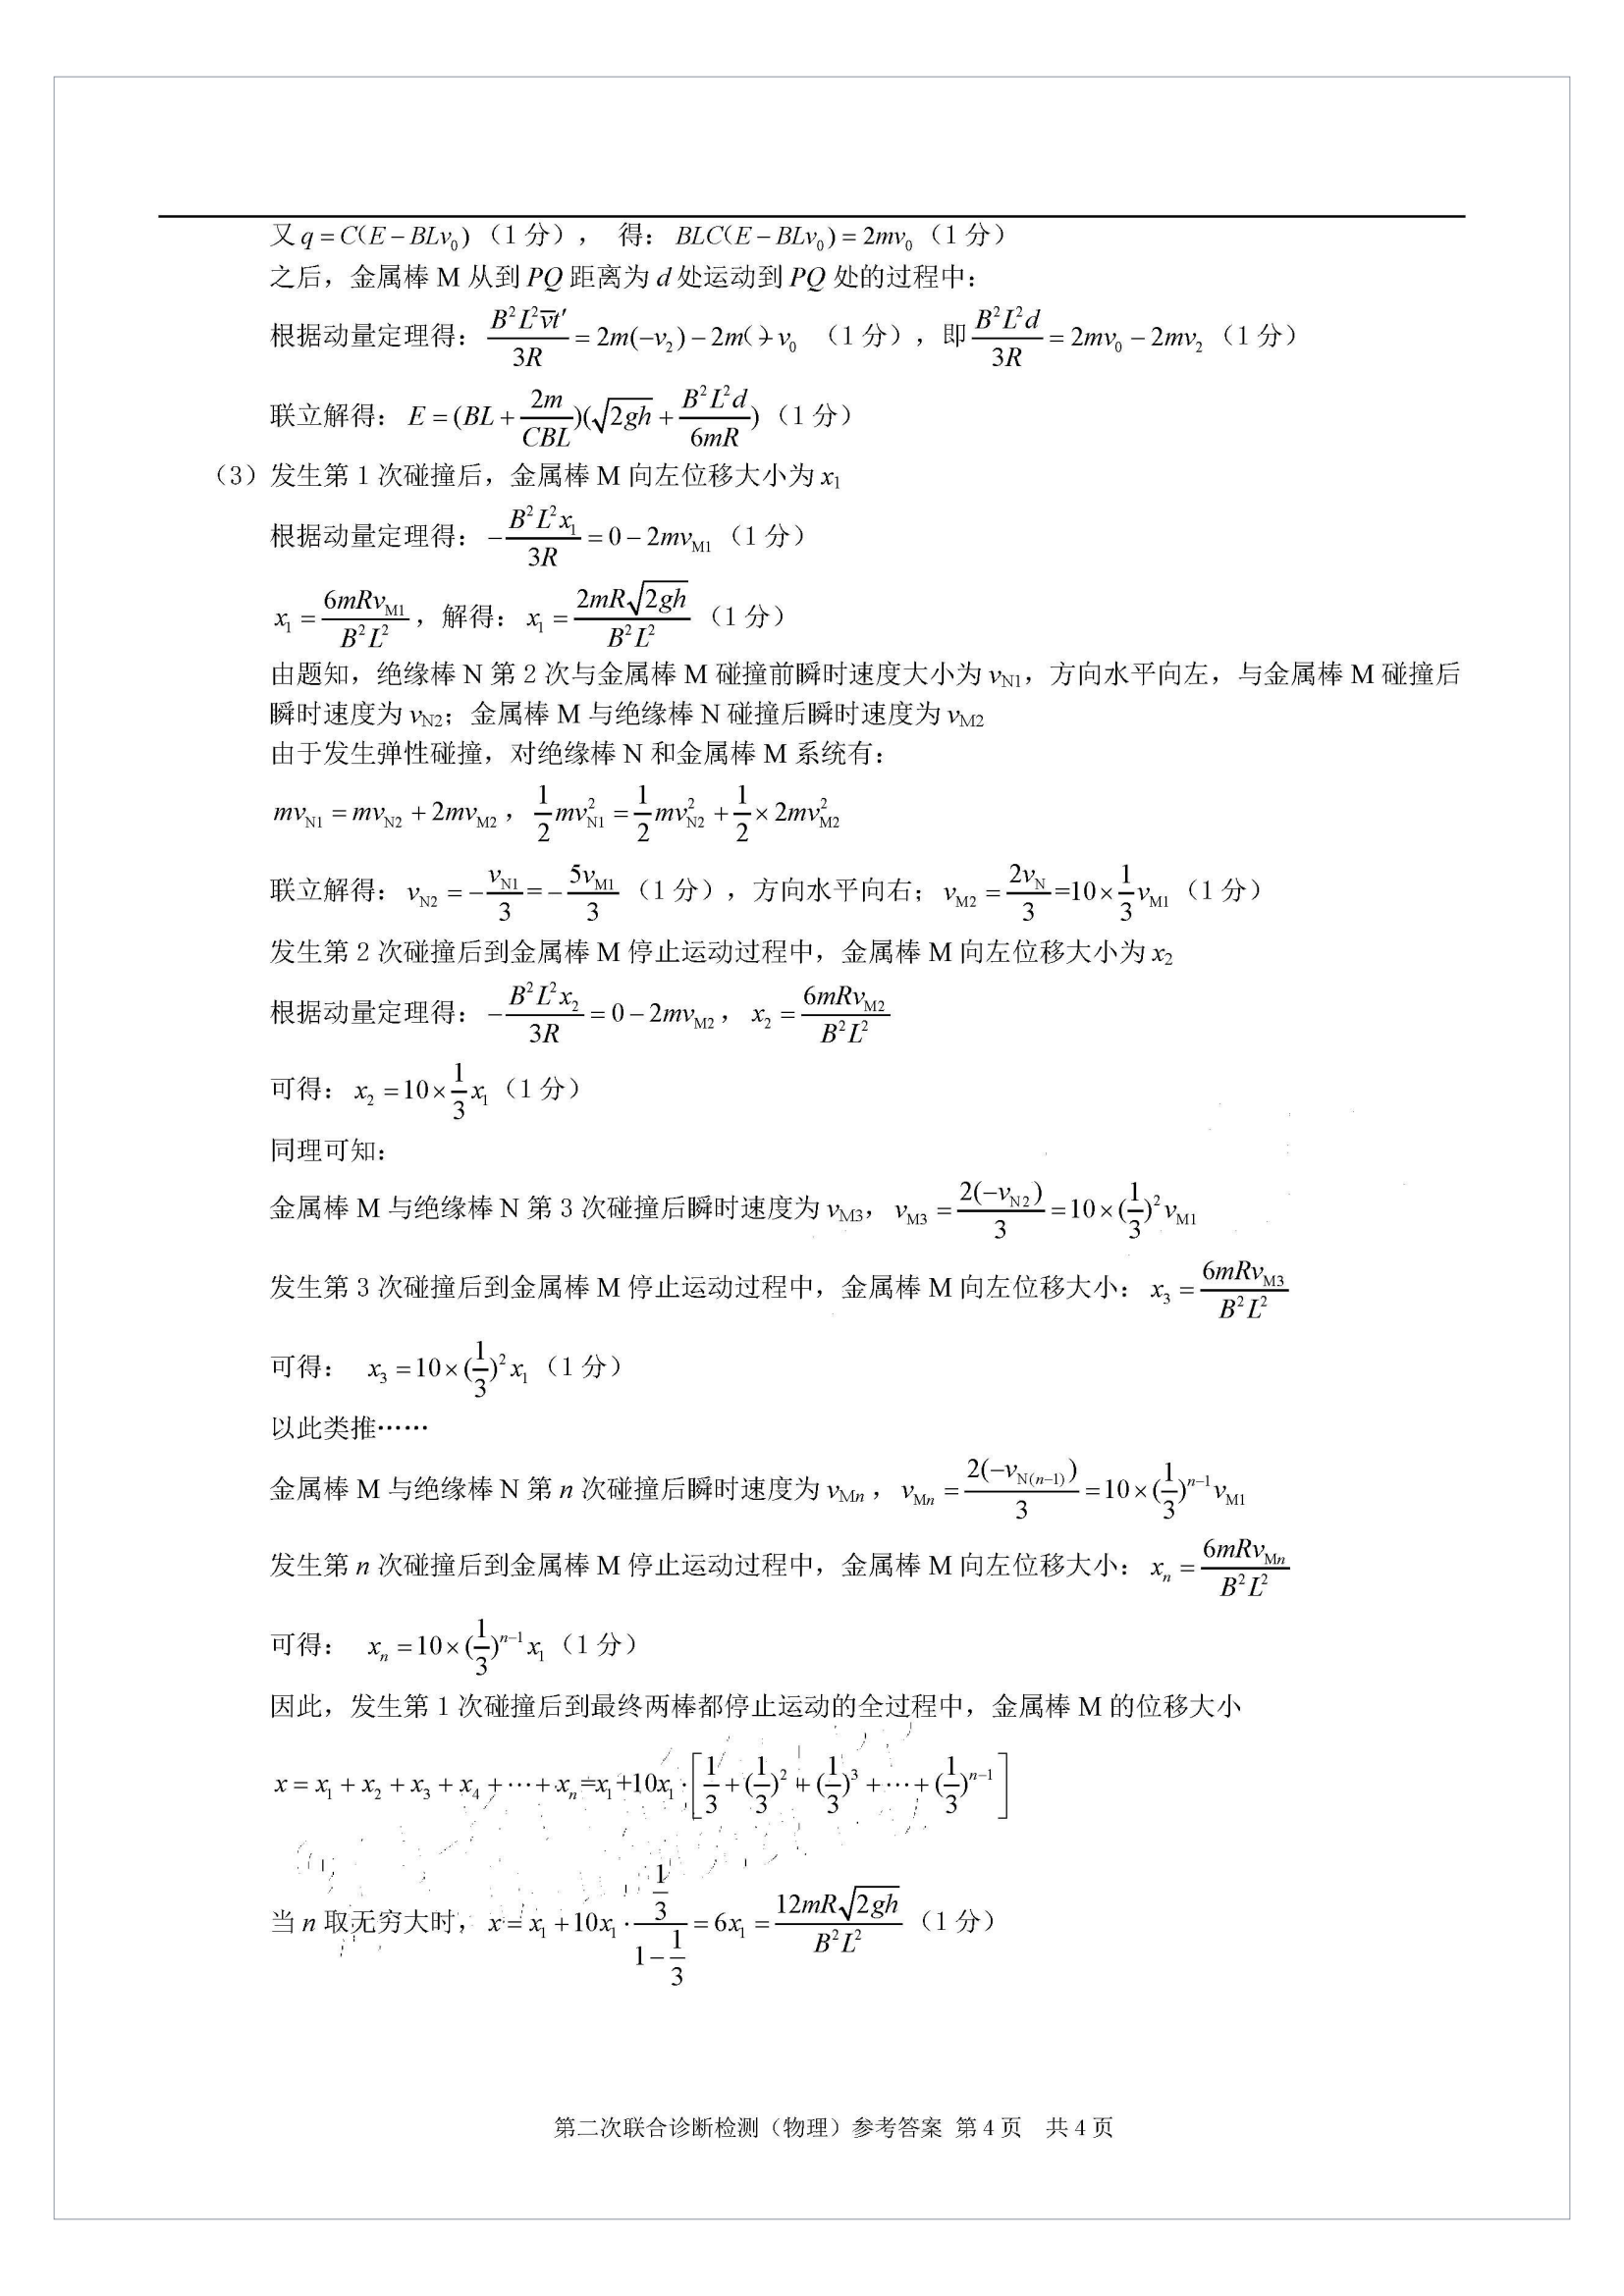 又 q = C(E − BLv₀)（1 分）， 得： BLC(E − BLv₀) = 2mv₀（1 分）
之后，金属棒 M 从到 PQ 距离为 d 处运动到 PQ 处的过程中：
根据动量定理得： \frac{B²L²\overline{v}t′}{3R} = 2m(−v₂) − 2m(−)v₀ （1 分），即 \frac{B²L²d}{3R} = 2mv₀ − 2mv₂（1 分）
联立解得： E = (BL + \frac{2m}{CBL})(\sqrt{2gh} + \frac{B²L²d}{6mR})（1 分）
（3）发生第 1 次碰撞后，金属棒 M 向左位移大小为 x₁
根据动量定理得： −\frac{B²L²x₁}{3R} = 0 − 2mv_{M1}（1 分）
x₁ = \frac{6mRv_{M1}}{B²L²}，解得： x₁ = \frac{2mR\sqrt{2gh}}{B²L²}（1 分）
由题知，绝缘棒 N 第 2 次与金属棒 M 碰撞前瞬时速度大小为 v_{N1}，方向水平向左，与金属棒 M 碰撞后
瞬时速度为 v_{N2}；金属棒 M 与绝缘棒 N 碰撞后瞬时速度为 v_{M2}
由于发生弹性碰撞，对绝缘棒 N 和金属棒 M 系统有：
mv_{N1} = mv_{N2} + 2mv_{M2}， \frac{1}{2}mv_{N1}² = \frac{1}{2}mv_{N2}² + \frac{1}{2}×2mv_{M2}²
联立解得： v_{N2} = −\frac{v_{N1}}{3} = −\frac{5v_{M1}}{3}（1 分），方向水平向右； v_{M2} = \frac{2v_{N}}{3} = 10×\frac{1}{3}v_{M1}（1 分）
发生第 2 次碰撞后到金属棒 M 停止运动过程中，金属棒 M 向左位移大小为 x₂
根据动量定理得： −\frac{B²L²x₂}{3R} = 0 − 2mv_{M2}， x₂ = \frac{6mRv_{M2}}{B²L²}
可得： x₂ = 10×\frac{1}{3}x₁（1 分）
同理可知：
金属棒 M 与绝缘棒 N 第 3 次碰撞后瞬时速度为 v_{M3}， v_{M3} = \frac{2(−v_{N2})}{3} = 10×(\frac{1}{3})²v_{M1}
发生第 3 次碰撞后到金属棒 M 停止运动过程中，金属棒 M 向左位移大小： x₃ = \frac{6mRv_{M3}}{B²L²}
可得： x₃ = 10×(\frac{1}{3})²x₁（1 分）
以此类推……
金属棒 M 与绝缘棒 N 第 n 次碰撞后瞬时速度为 v_{Mn}， v_{Mn} = \frac{2(−v_{N(n−1)})}{3} = 10×(\frac{1}{3})^{n−1}v_{M1}
发生第 n 次碰撞后到金属棒 M 停止运动过程中，金属棒 M 向左位移大小： x_n = \frac{6mRv_{Mn}}{B²L²}
可得： x_n = 10×(\frac{1}{3})^{n−1}x₁（1 分）
因此，发生第 1 次碰撞后到最终两棒都停止运动的全过程中，金属棒 M 的位移大小
x = x₁ + x₂ + x₃ + x₄ + ⋯ + x_n = x₁ + 10x₁·[\frac{1}{3} + (\frac{1}{3})² + (\frac{1}{3})³ + ⋯ + (\frac{1}{3})^{n−1}]
当 n 取无穷大时， x = x₁ + 10x₁·\frac{\frac{1}{3}}{1−\frac{1}{3}} = 6x₁ = \frac{12mR\sqrt{2gh}}{B²L²}（1 分）
第二次联合诊断检测（物理）参考答案 第 4 页 共 4 页